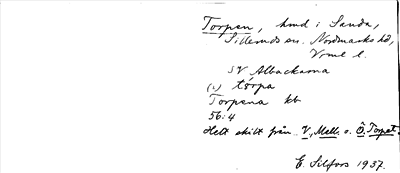 Torpen, hmd i Sanda,
Silleruds sn. Nordmarks hd,
Vrml l.
SV Albackarna
(1) tórpa
Torpena kb
56:4
Helt skilt från V., Mell. o. Ö. Torpet.
E. Silfors 1937.